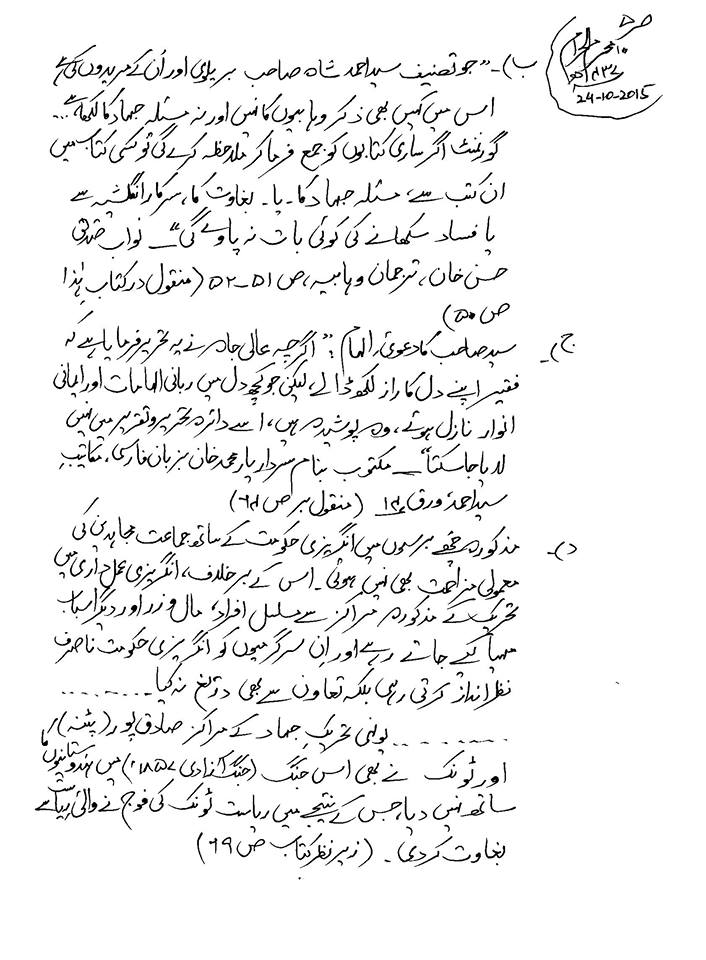 ص ۵
۱۰ محرم الحرام
۱۴۳۷ھ
24-10-2015
ب)۔ "جو تصنیف سید احمد شاہ صاحب بریلوی اور اُن کے مریدوں کی ہے
اس میں کہیں بھی ذکر وہابیوں کا نہیں اور نہ مسئلہ جہاد کا لکھا ہے...
گورنمنٹ اگر ساری کتابوں کو جمع فرما کر ملاحظہ کرے گی تو کسی کتاب میں
ان کتب سے، مسئلہ جہاد کا۔ یا۔ بغاوت کا، سرکار انگلشیہ سے
یا فساد سکھانے کی کوئی بات نہ پاوے گی"۔ نواب صدیق
حسن خان، ترجمان وہابیہ، ص ۵۱-۵۲ (منقول در کتاب ہٰذا
ص ۵۰)
ج)۔ سید صاحب کا دعویٰ الہام: "اگرچہ عالی جاہ نے یہ تحریر فرمایا ہے کہ
فقیر اپنے دل کا راز لکھ ڈالے، لیکن جو کچھ دل میں ربانی الہامات اور ایمانی
انوار نازل ہوئے، وہ پوشیدہ ہیں، اسے دائرہ تحریر و تقریر میں نہیں
لایا جا سکتا"۔ مکتوب بنام سردار یار محمد خان بزبان فارسی، مکاتیب
سید احمد ورق ۱۴ (منقول بر ص ۶۴)
د)۔ مذکورہ چھے برسوں میں انگریزی حکومت کے ساتھ جماعت مجاہدین کی
معمولی مزاحمت بھی نہیں ہوئی۔ اس کے برخلاف، انگریزی عمل داری میں
تحریک کے مذکورہ مراکز سے مسلسل افراد، مال و زر اور دیگر اسباب
مہیا کیے جاتے رہے اور اِن سرگرمیوں کو انگریزی حکومت نا صرف
نظر انداز کرتی رہی بلکہ تعاون سے بھی دریغ نہ کیا.........
......... یونہی تحریکِ جہاد کے مراکز صادق پور (پٹنہ)
اور ٹونک نے بھی اس جنگ (جنگ آزادی ۱۸۵۷ء) میں ہندوستانیوں کا
ساتھ نہیں دیا، جس کے نتیجے میں ریاست ٹونک کی فوج نے والیٔ ریاست سے
بغاوت کر دی۔ (زیر نظر کتاب ص ۶۹)